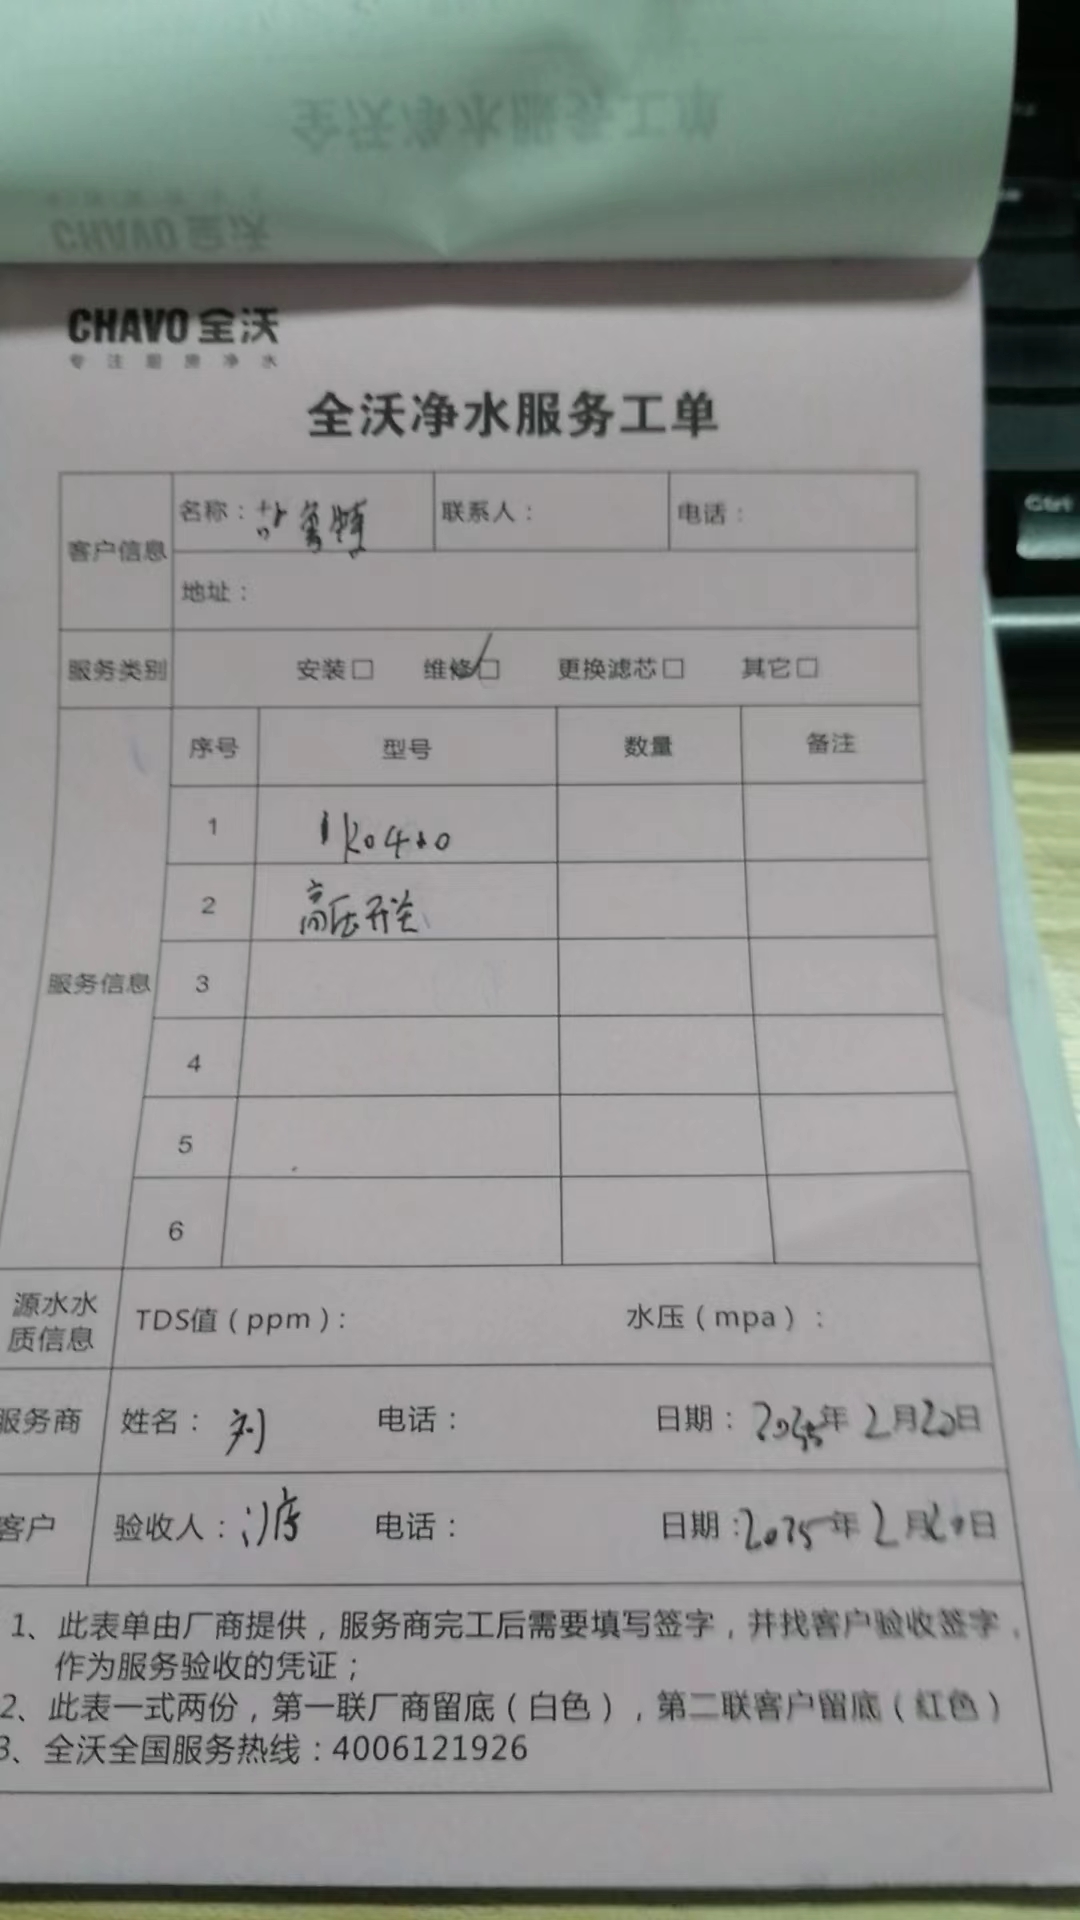 全沃净水服务工单
CHAVO 全沃
CHAVO 全沃
专注厨房净水
全沃净水服务工单
客户信息 名称： 联系人： 电话：
地址：
服务类别 安装□ 维修□ 更换滤芯□ 其它□
序号 型号 数量 备注
1
2 高压开关
服务信息 3
4
5
6
源水水质信息 TDS值（ppm）： 水压（mpa）：
服务商 姓名：刘 电话： 日期：2025年2月20日
客户 验收人： 电话： 日期：2025年2月20日
1、此表单由厂商提供，服务商完工后需要填写签字，并找客户验收签字，
作为服务验收的凭证；
2、此表一式两份，第一联厂商留底（白色），第二联客户留底（红色）
3、全沃全国服务热线：4006121926
Ctrl